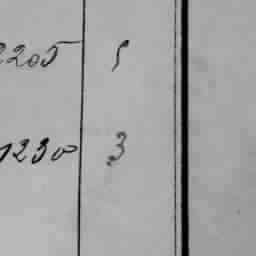 2205 5
1230 3